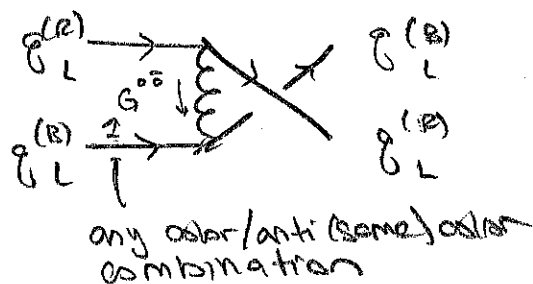 q_L^(R)
q_L^(B)
G^oō ↓
q_L^(B)
1
q_L^(R)
any color/anti (same) color
combination